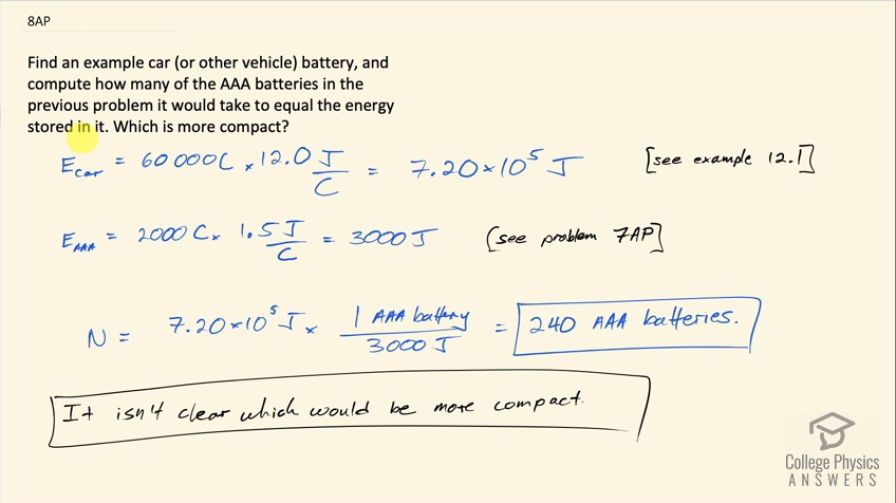 8AP
Find an example car (or other vehicle) battery, and
compute how many of the AAA batteries in the
previous problem it would take to equal the energy
stored in it. Which is more compact?
E_car = 60 000C × 12.0 J/C = 7.20×10⁵ J [see example 12.1]
E_AAA = 2000 C × 1.5 J/C = 3000 J [see problem 7AP]
N = 7.20×10⁵ J × 1 AAA battery / 3000 J = 240 AAA batteries.
It isn't clear which would be more compact.
College Physics
ANSWERS